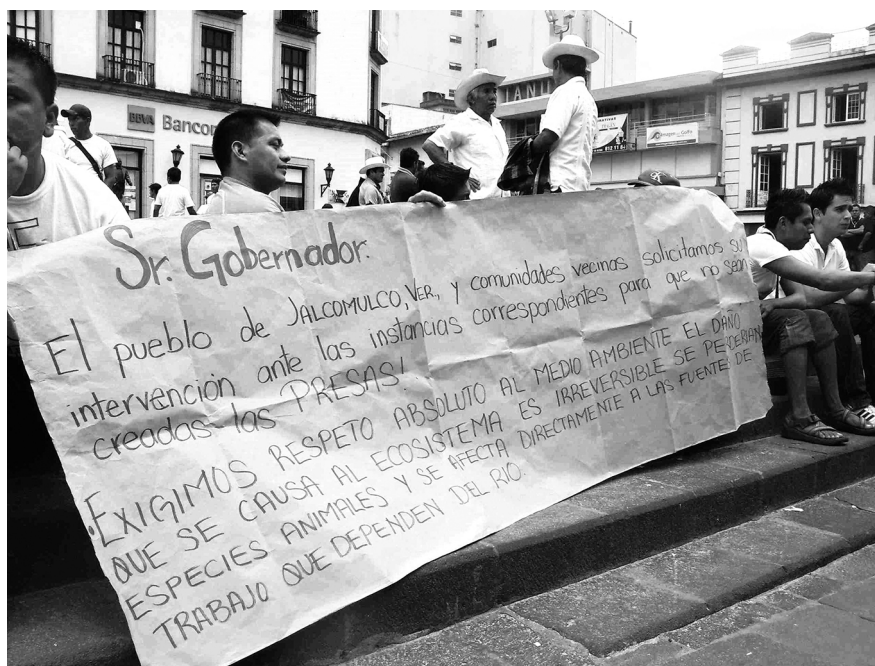 BBVA Bancom
Sr. Gobernador.
El pueblo de JALCOMULCO, VER, y comunidades vecinas solicitamos su
intervención ante las instancias correspondientes para que no sean
creadas las PRESAS!
•EXIGIMOS RESPETO ABSOLUTO AL MEDIO AMBIENTE EL DAÑO
QUE SE CAUSA AL ECOSISTEMA ES IRREVERSIBLE SE PERDERIAN
ESPECIES ANIMALES Y SE AFECTA DIRECTAMENTE A LAS FUENTE DE
TRABAJO QUE DEPENDEN DEL RIO.